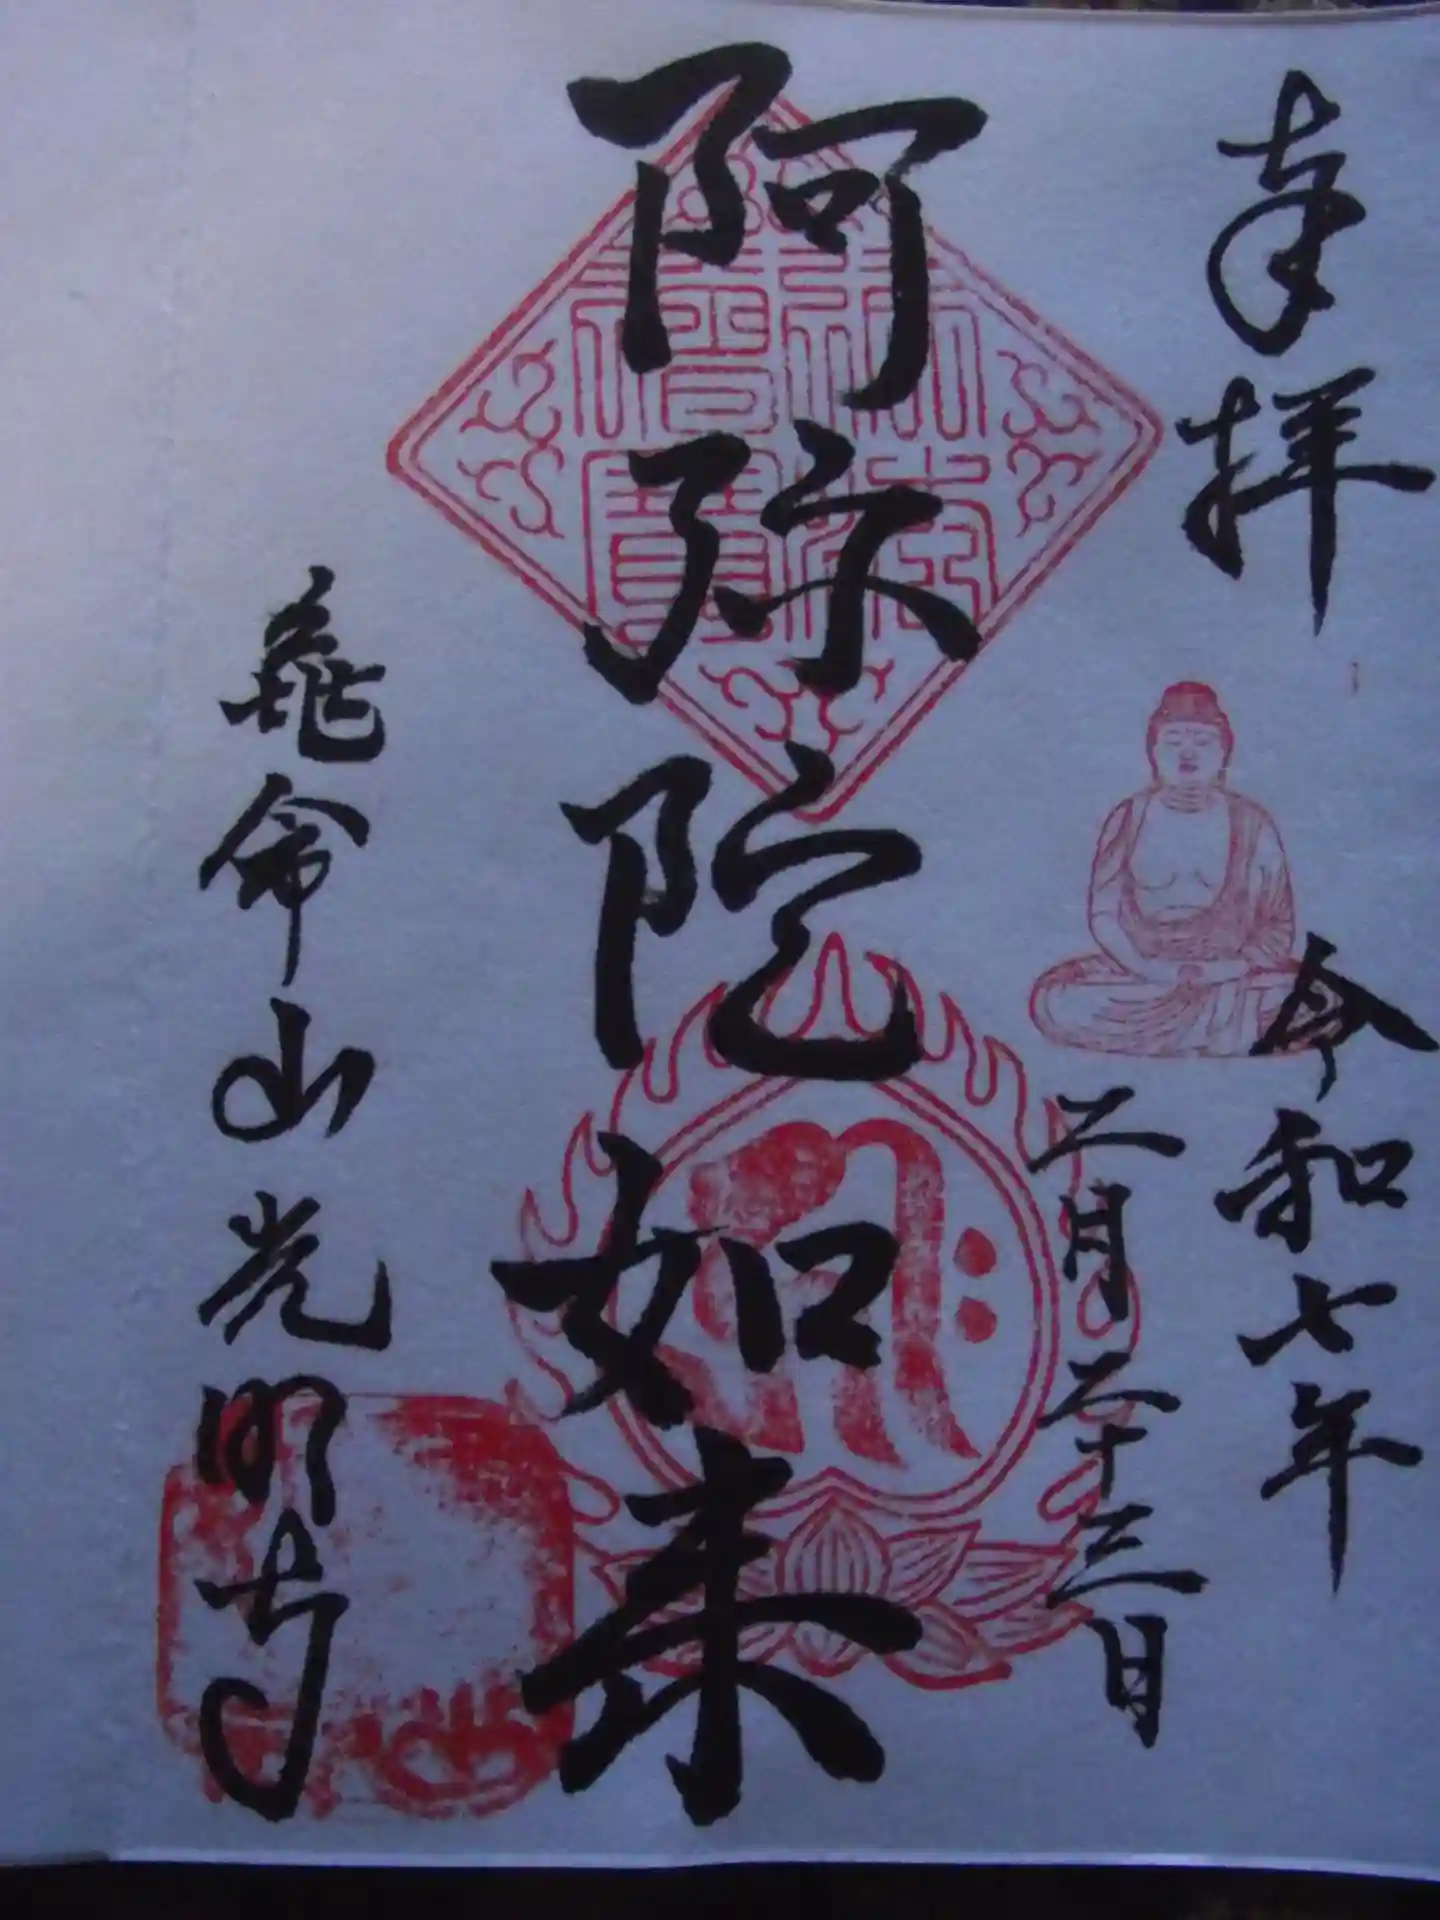 奉拝
令和七年
二月二十三日
阿弥陀如来
佛法僧寶
亀命山光明寺